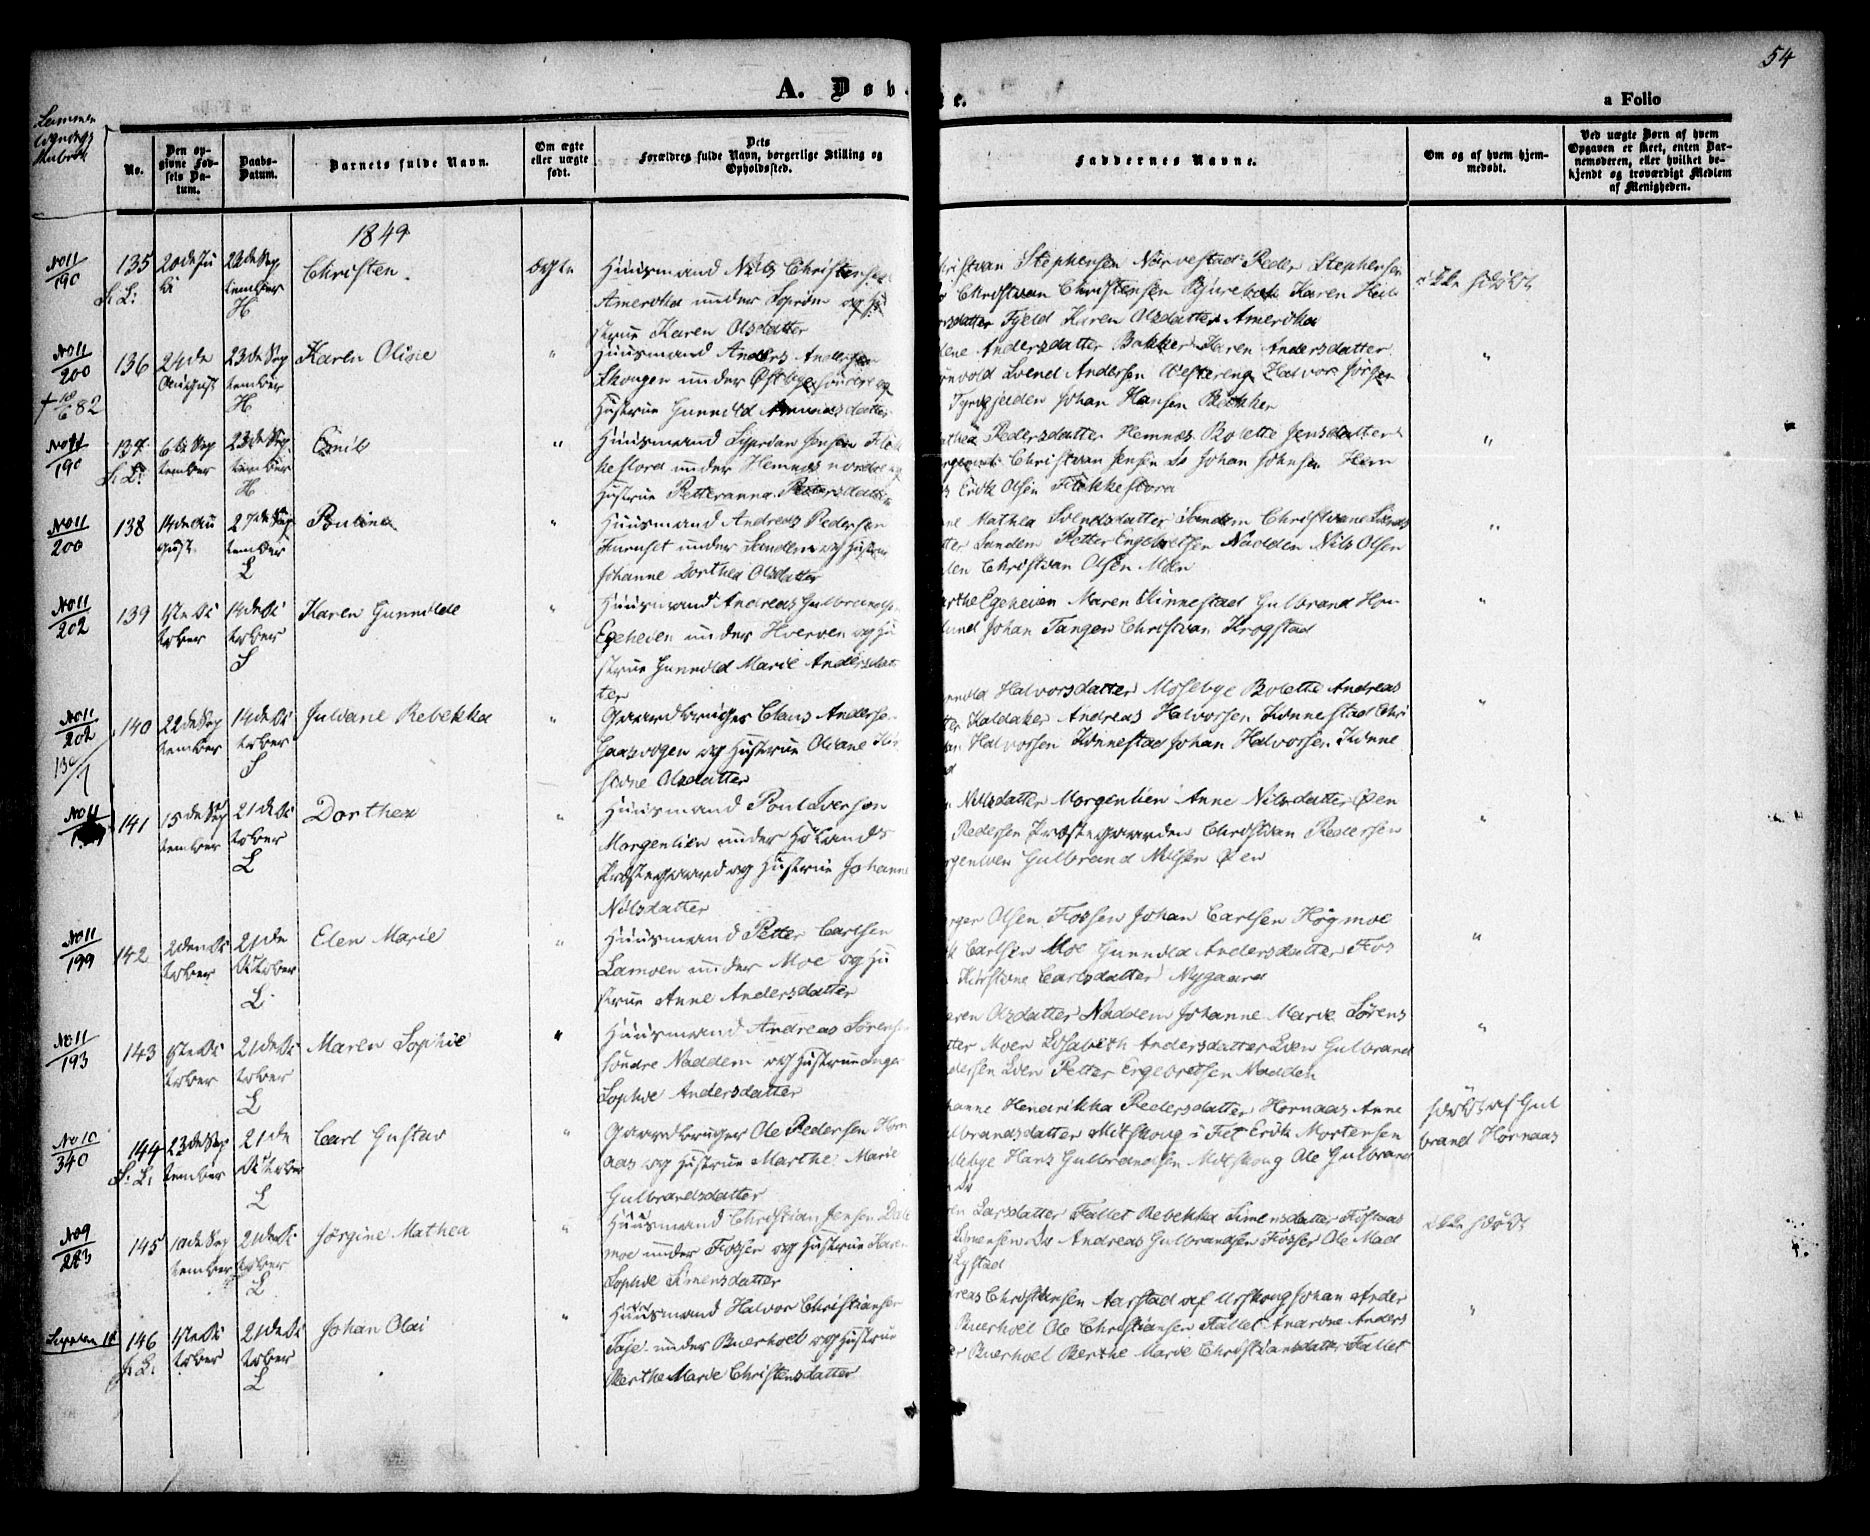 54
A. Døb-
te.
a Folio
No.
Den op-
givne Fød-
sels Da-
tum.
Daabs-
Datum.
Barnets fulde Navn.
Om ægte
eller uægte
født.
Dets
Forældres fulde Navn, borgerlige Stilling og
Opholdssted.
Faddernes Navne.
Om og af hvem hjem-
medøbt.
Ved uægte Børn af hvem
Opgaven er skeet, enten Bar-
nemoderen, eller hvilket be-
kjendt og troværdigt Medlem
af Menigheden.
1849
No 11
190
135
20de Ju
li
23de Sep
tember
H
Christen.
Ægte
Huusmand Nils Christensen
Amerika under Soprim og Hu
strue Karen Olsdatter
Christian Stephensen Nærvestad Peder Stephensen
Christian Christensen Karen
Fjeld Karen Olsdatter Amerika
Ikke hjdøbt
No 11
200
136
24de
August
23de Sep
tember
H
Karen Oline
"
Huusmand Anders Andersen
Skougen under Østbye søndre og
Hustrue Gunnild datter
Andersdatter Bakker Karen Andersdatter
Svend Andersen Westereng Halvor
Johan Hansen Bakker
"
No 11
190
137
6te Sep
tember
23de Sep
tember
H
Emil
"
Huusmand Jensen Flek
kestora under Hemnes nordre og
Hustrue Petteranna Pedersdatter
Pedersdatter Hemnes Bolette Jensdatter
Christian Jensen Do Johan Johnsen Hem
Erik Olsen Flekkestora
"
No 11
200
138
14de Au
gust.
27de Sep
tember
L
Pauline
"
Huusmand Andreas Pedersen
Furuset under Sandem og Hustrue
Johanne Dorthea Olsdatter
Mathea Svendsdatter Sandem Christiane Svends
Sandem Petter Engebretsen Nadden Nils Olsen
Christian Olsen Moen
"
No 11
202
139
1ste Oc
tober
14de Oc
tober
S
Karen Gunnilde
"
Huusmand Andreas Gulbrandsen
Egeheien under Hverven og Hu
strue Gunnild Marie Andersdat
ter
Marthe Egeheien Maren Kinnestad Gulbrand Hou-
lund Johan Tangen Christian Krogstad
"
No 11
202
140
22de Sep
tember
14de Oc
tober
S
Juliane Rebekka
"
Gaardbruger Claus Anderse
Gaasvogen og Hustrue Oliane Kir
stine Olsdatter
Halvorsdatter Mosebye Bolette Andreas
Kaldaker Andreas Halvorsen Kinnestad Chri
Halvorsen Kinnestad Johan Halvorsen Kinne
"
No 11
141
15de Sep
tember
21de Oc
tober
L
Dorthea
"
Huusmand Poul Iversen
Morgenlien under Hølands
Præstegaard og Hustrue Johanne
Nilsdatter
Nilsdatter Morgenlien Anne Nilsdatter Øen
Pedersen Præstegaarden Christian Pedersen
Morgenlien Gulbrand Nilsen Øen
"
No 11
199
142
2den Oc
tober
21de
October
L
Elen Marie
"
Huusmand Petter Carlsen
Lamoen under Moe og Hu
strue Anne Andersdatter
Olsen Fossen Johan Carlsen Høgmoe
Carlsen Moe Gunnilda Andersdatter Fos
Kirstine Carlsdatter Nygaard
"
No 11
193
143
1ste Oc
tober
21de Oc
tober
L
Maren Sophie
"
Huusmand Andreas Sørensen
søndre Naddem og Hustrue Inger
Sophie Andersdatter
Karen Olsdatter Naddem Johanne Marie Sørens
datter Moen Elisabeth Andersdatter Lien Gulbrand
Pedersen Lien Petter Engebretsen Nadden
"
No 10
340
144
23de Sep
tember
21de
October
L
Carl Gustav
"
Gaardbruger Ole Pedersen Horn
aas og Hustrue Marthe Marie
Gulbrandsdatter
Hanne Hendrikka Pedersdatter Hornaas Anne
Gulbrandsdatter Mitskoug i Fet Erik Mortensen
Hans Gulbrandsen Mitskoug Ole Gulbrand
hjdøbt af Gul
brand Hornaas
No 9
283
145
10de Sep
tember
21de Oc
tober
L
Jørgine Mathea
"
Huusmand Christian Jensen Dale
moe under Fossen og Hustrue Karen
Sophie Simensdatter
Larsdatter Fallet Rebekka Simensdatter Fosaas
Simensen Do Andreas Gulbrandsen Fosser Ole Mad
Lystad
Ikke hjdøbt
146
4de Oc
tober
21de Oc
tober
L
Johan Olai
"
Huusmand Halvor Christiansen
Taje under Buerhoel og Hustrue
Berthe Marie Christensdatter
Andreas Christensen Aarstad af Urskoug Johan Ander
Buerhoel Ole Christiansen Fallet Andrine Anders
Buerhoel Berthe Marie Christiansdatter Fallet
"